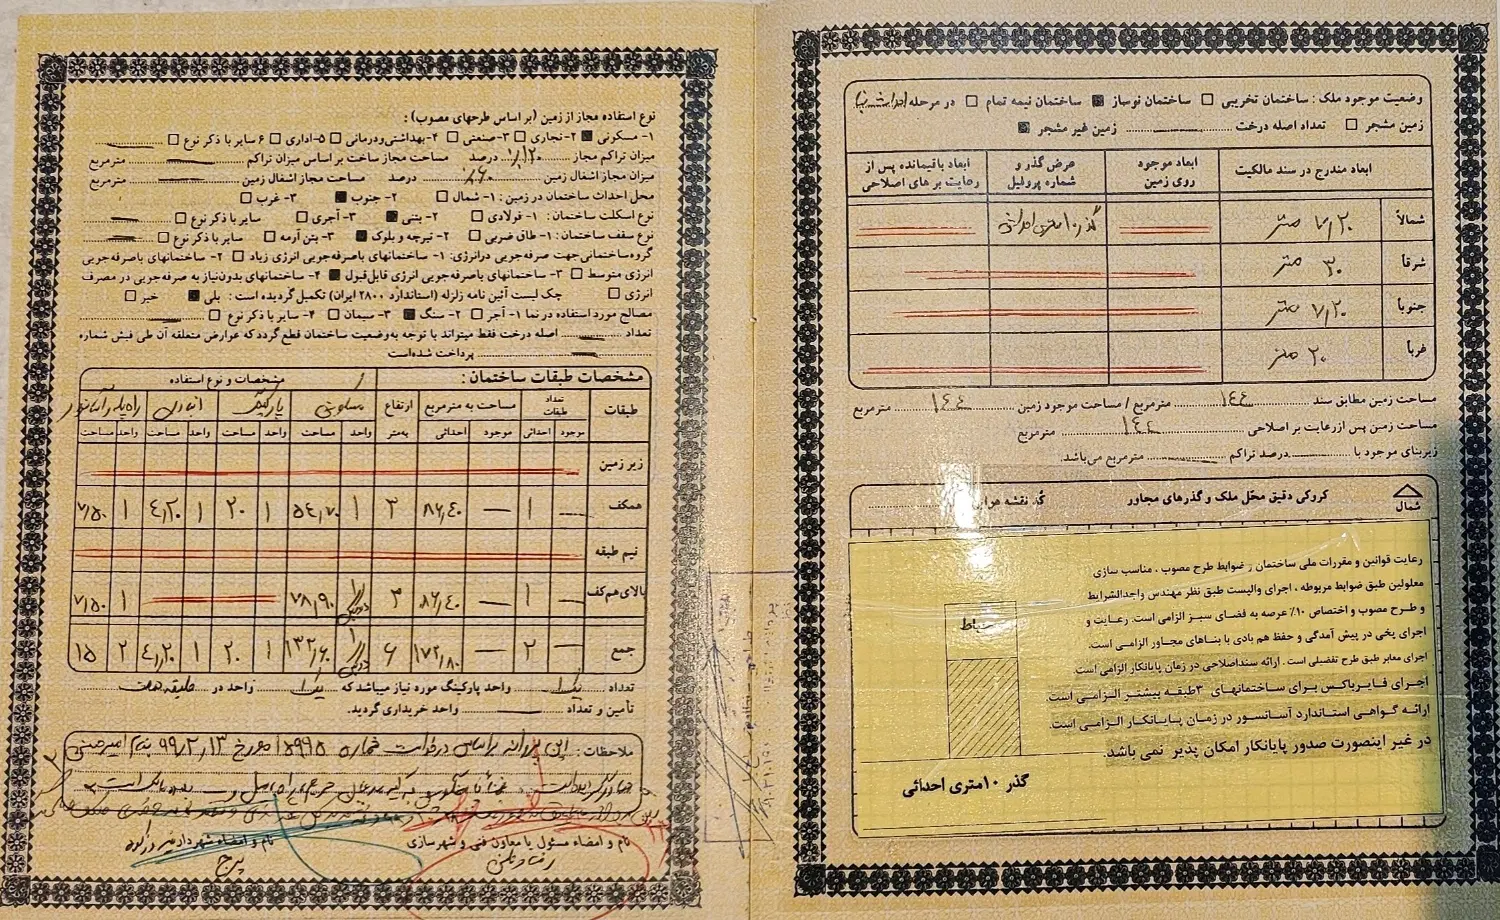 وضعیت موجود ملک : ساختمان تخریبی ☐ ساختمان نوساز ■ ساختمان نیمه تمام ☐ در مرحله احداث بنا
زمین مشجر ☐ تعداد اصله درخت زمین غیر مشجر ■
ابعاد مندرج در سند مالکیت
ابعاد موجود روی زمین
عرض گذر و شماره پروفیل
ابعاد باقیمانده پس از رعایت برهای اصلاحی
شمالاً ۷/۲۰ متر گذر ۱۰ متری احداثی
شرقا ۲۰ متر
جنوبا ۷/۲۰ متر
غرباً ۲۰ متر
مساحت زمین مطابق سند ۱۴۴ مترمربع / مساحت موجود زمین ۱۴۴ مترمربع
مساحت زمین پس از رعایت بر اصلاحی ۱۴۴ مترمربع
زیربنای موجود با درصد تراکم مترمربع می‌باشد.
کروکی دقیق محل ملک و گذرهای مجاور کد نقشه
شمال
رعایت قوانین و مقررات ملی ساختمان و ضوابط طرح مصوب ، مناسب سازی
معلولین طبق ضوابط مربوطه ، اجرای والیست طبق نظر مهندس واجدالشرایط
و طرح مصوب و اختصاص ۱۰٪ عرصه به فضای سبز الزامی است. رعایت و
اجرای پخی در پیش آمدگی و حفظ هم بادی با بناهای مجاور الزامی است.
اجرای معابر طبق طرح تفضیلی است. ارائه سنداصلاحی در زمان پایانکار الزامی است.
اجرای فایرباکس برای ساختمانهای ۳طبقه بیشتر الزامی است.
ارائه گواهی استاندارد آسانسور در زمان پایانکار الزامی است.
در غیر اینصورت صدور پایانکار امکان پذیر نمی باشد.
حیاط
گذر ۱۰متری احداثی
نوع استفاده مجاز از زمین (بر اساس طرحهای مصوب) :
۱- مسکونی ■ ۲- تجاری ☐ ۳-صنعتی ☐ ۴- بهداشتی‌ودرمانی ☐ ۵-اداری ☐ ۶ سایر با ذکر نوع ☐
میزان تراکم مجاز ٪۱۲۰ درصد مساحت مجاز ساخت بر اساس میزان تراکم مترمربع
میزان مجاز اشغال زمین ٪۶۰ درصد مساحت مجاز اشغال زمین مترمربع
محل احداث ساختمان در زمین : ۱- شمال ☐ ۲- جنوب ■ ۳- غرب ☐
نوع اسکلت ساختمان : ۱- فولادی ☐ ۲- بتنی ■ ۳- آجری ☐ سایر با ذکر نوع ☐
نوع سقف ساختمان : ۱- طاق ضربی ☐ ۲- تیرچه و بلوک ■ ۳- بتن آرمه ☐ سایر با ذکر نوع ☐
گروه‌ساختمانی‌جهت صرفه‌جویی درانرژی: ۱- ساختمانهای باصرفه‌جویی انرژی زیاد ☐ ۲- ساختمانهای باصرفه‌جویی
انرژی متوسط ☐ ۳- ساختمانهای باصرفه‌جویی انرژی قابل‌قبول ■ ۴- ساختمانهای بدون‌نیاز به صرفه‌جویی در مصرف
انرژی ☐ چک لیست آئین نامه زلزله (استاندارد ۲۸۰۰ ایران) تکمیل گردیده است : بلی ■ خیر ☐
مصالح مورد استفاده در نما ۱- آجر ☐ ۲- سنگ ■ ۳- سیمان ☐ ۴- سایر با ذکر نوع ☐
تعداد اصله درخت فقط میتواند با توجه به‌وضعیت ساختمان قطع گردد که عوارض متعلقه آن طی فیش شماره
پرداخت شده‌است
مشخصات طبقات ساختمان : مشخصات و نوع استفاده
طبقات تعداد طبقات مساحت به مترمربع ارتفاع مسکونی پارکینگ انباری راه پله و آسانسور
موجود احداثی موجود احداثی به‌متر واحد مساحت واحد مساحت واحد مساحت واحد مساحت
زیر زمین
همکف — ۱ — ۸۶/۴۰ ۳ ۱ ۵۴/۷۰ ۱ ۲۰ ۱ ۴/۲۰ ۱ ۷/۵۰
نیم طبقه
بالای هم‌کف — ۱ — ۸۶/۴۰ ۳ ۷۸/۹۰ ۱ ۷/۵۰
جمع — ۲ — ۱۷۲/۸۰ ۶ ۱ ۱۳۳/۶۰ ۱ ۲۰ ۱ ۴/۲۰ ۲ ۱۵
تعداد یک واحد پارکینگ مورد نیاز میباشد که یک واحد در طبقه همکف
تأمین و تعداد واحد خریداری گردید.
ملاحظات : این پروانه براساس درخواست شماره ۱۵۹۹۵ مورخ ۹۹/۲/۱۳ بنام امیر
نام و امضاء مسئول یا معاون فنی و شهرسازی
نام و امضاء شهردار